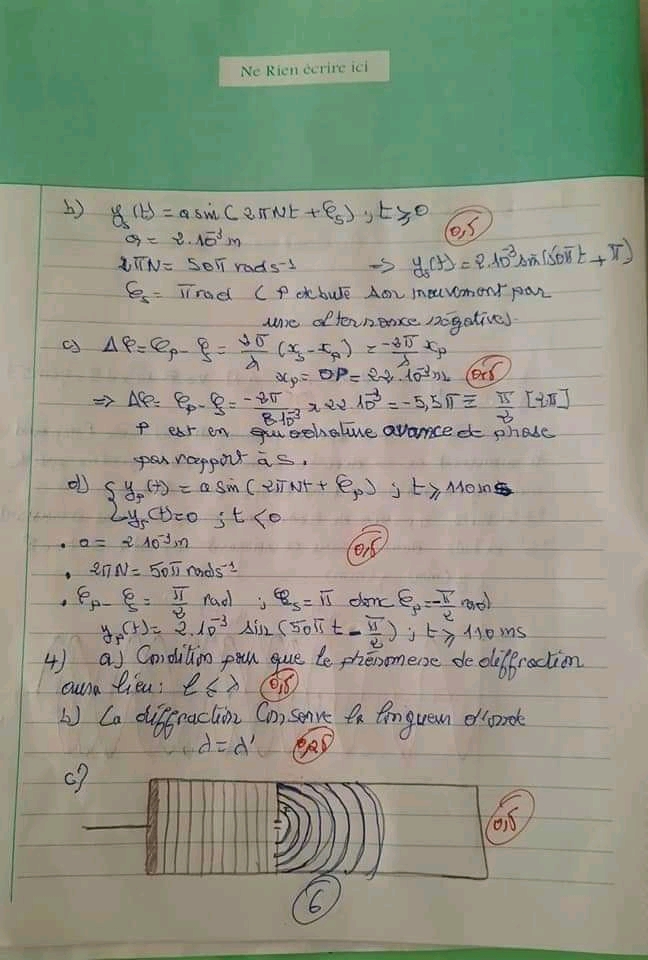 Ne Rien écrire ici
b) y_s(t) = a sin(2πNt + φ_s) ; t ≥ 0
0,5
a = 2.10⁻³ m
2πN = 50π rads⁻¹ ⇒ y_s(t) = 2.10⁻³ sin(50πt + π)
φ_s = π rad ( P debute son mouvement par
une alternance négative).
c) Δφ = φ_p - φ_s = 2π/λ (x_s - x_p) = -2π/λ x_p
x_p = OP = 22.10⁻³ m
0,5
⇒ Δφ = φ_p - φ_s = -2π/8.10⁻³ x 22.10⁻³ = -5,5π ≡ π/2 [2π]
P est en quadrature avance de phase
par rapport à S.
d) { y_p(t) = a sin(2πNt + φ_p) ; t ≥ 110ms
{ y_p(t) = 0 ; t < 0
. a = 2.10⁻³ m
0,5
. 2πN = 50π rads⁻¹
. φ_p - φ_s = π/2 rad ; φ_s = π donc φ_p = -π/2 rad
y_p(t) = 2.10⁻³ sin(50πt - π/2) ; t ≥ 110 ms
4) a) Condition pour que le phénomene de diffraction
aura lieu : l ≤ λ 0,5
b) La diffraction Conserve la longueur d'onde
λ = λ' 0,25
c)
0,5
6